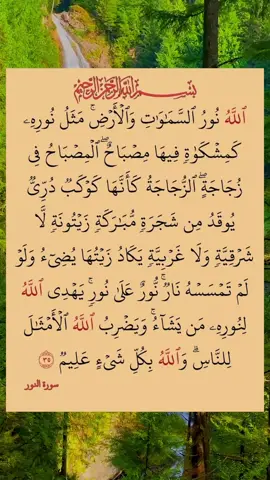 بِسْمِ ٱللَّهِ ٱلرَّحْمَـٰنِ ٱلرَّحِيمِ
ٱللَّهُ نُورُ ٱلسَّمَـٰوَٰتِ وَٱلْأَرْضِ ۚ مَثَلُ نُورِهِۦ
كَمِشْكَوٰةٍ فِيهَا مِصْبَاحٌ ۖ ٱلْمِصْبَاحُ فِى
زُجَاجَةٍ ۖ ٱلزُّجَاجَةُ كَأَنَّهَا كَوْكَبٌ دُرِّىٌّ
يُوقَدُ مِن شَجَرَةٍ مُّبَـٰرَكَةٍ زَيْتُونَةٍ لَّا
شَرْقِيَّةٍ وَلَا غَرْبِيَّةٍ يَكَادُ زَيْتُهَا يُضِىٓءُ وَلَوْ
لَمْ تَمْسَسْهُ نَارٌ ۚ نُّورٌ عَلَىٰ نُورٍ ۗ يَهْدِى ٱللَّهُ
لِنُورِهِۦ مَن يَشَآءُ ۚ وَيَضْرِبُ ٱللَّهُ ٱلْأَمْثَـٰلَ
لِلنَّاسِ ۗ وَٱللَّهُ بِكُلِّ شَىْءٍ عَلِيمٌ ٣٥
سورة النور